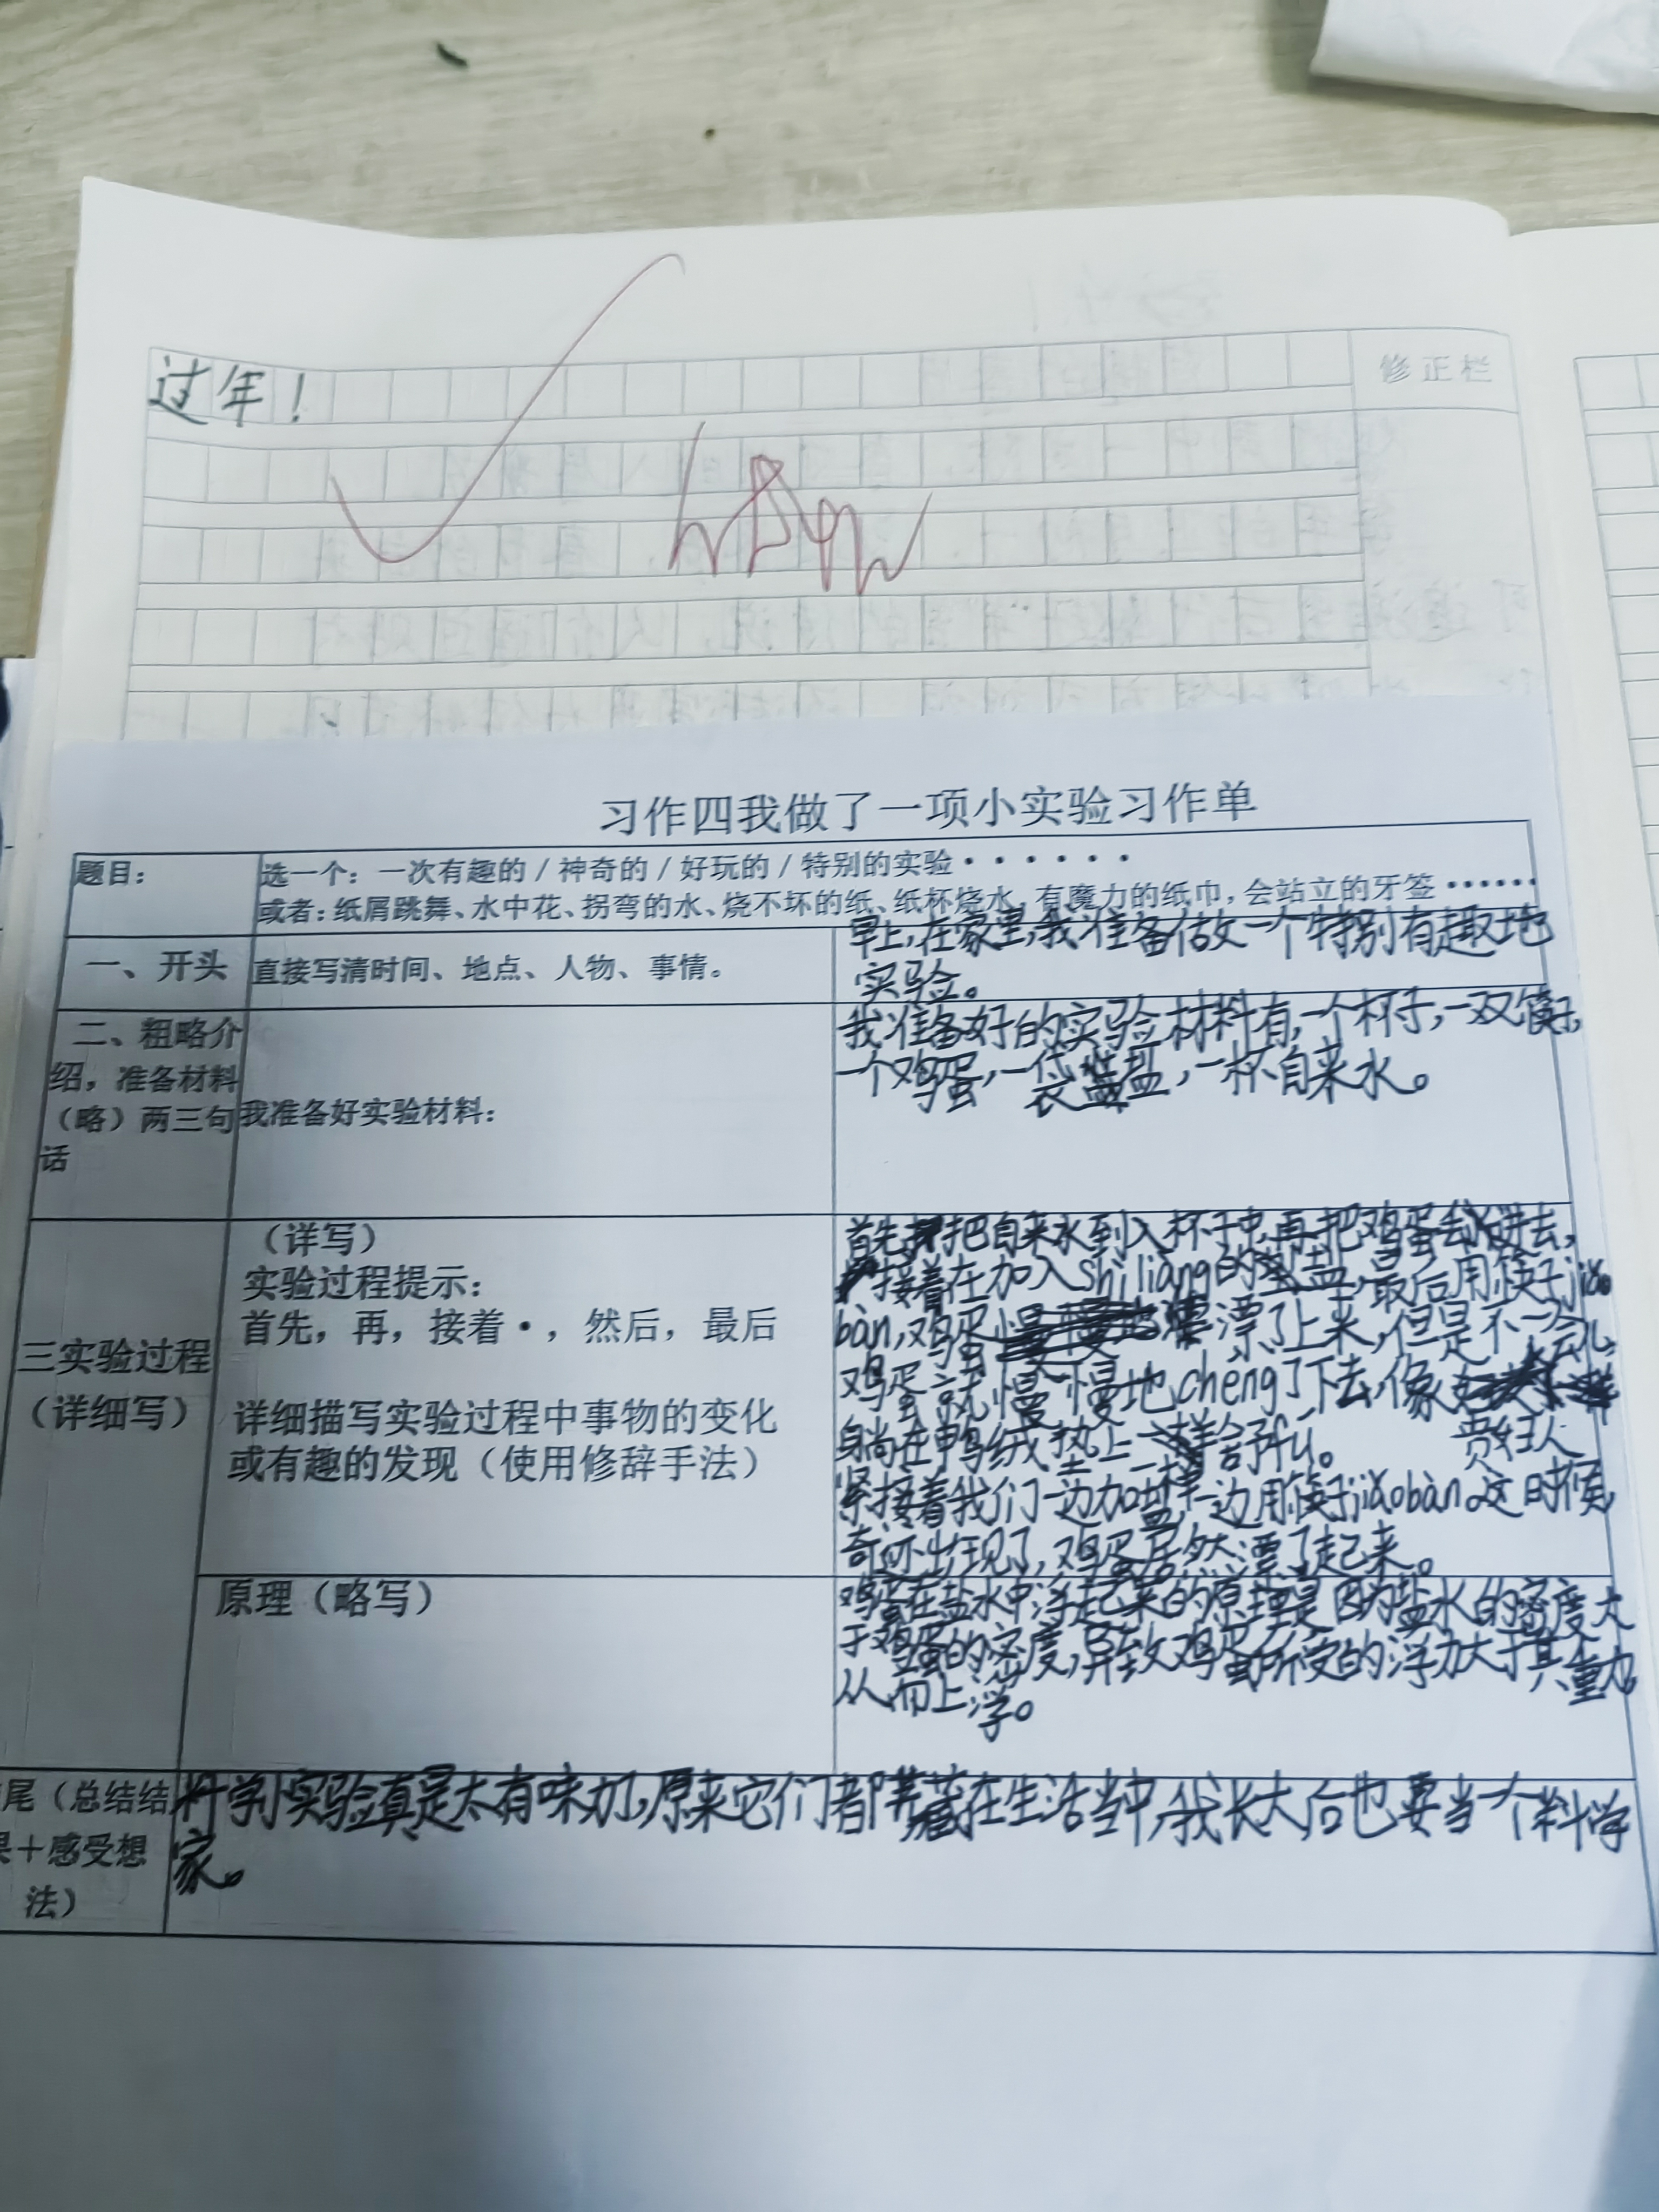 过年！
修正栏
习作四我做了一项小实验习作单
题目：
选一个：一次有趣的/神奇的/好玩的/特别的实验······
或者：纸屑跳舞、水中花、拐弯的水、烧不坏的纸、纸杯烧水，有魔力的纸巾，会站立的牙签······
一、开头
直接写清时间、地点、人物、事情。
早上，在家里，我准备做一个特别有趣地
实验。
二、粗略介
绍，准备材料
（略）两三句
话
我准备好实验材料：
我准备好的实验材料有，一个杯子，一双筷子，
一个鸡蛋，一袋盐，一杯自来水。
三实验过程
（详细写）
（详写）
实验过程提示：
首先，再，接着·，然后，最后
详细描写实验过程中事物的变化
或有趣的发现（使用修辞手法）
首先把自来水到入杯子中，再把鸡蛋放进去，
接着在加入shì liàng的盐，最后用筷子jiǎo
bàn，鸡蛋漂了上来，但是不一会儿，
鸡蛋就慢慢地chéng了下去，像贵妇人
躺在鸭绒垫上一样舒fu。
紧接着我们一边加盐一边用筷子jiǎobàn。这时候，
奇迹出现了，鸡蛋居然漂了起来。
原理（略写）
鸡蛋在盐水中浮起来的原理是因为盐水的密度大
于鸡蛋的密度，导致鸡蛋所受的浮力大于其重力，
从而上浮。
尾（总结结
果＋感受想
法）
科学小实验真是太有味力了，原来它们都藏在生活当中，我长大后也要当一个科学
家。